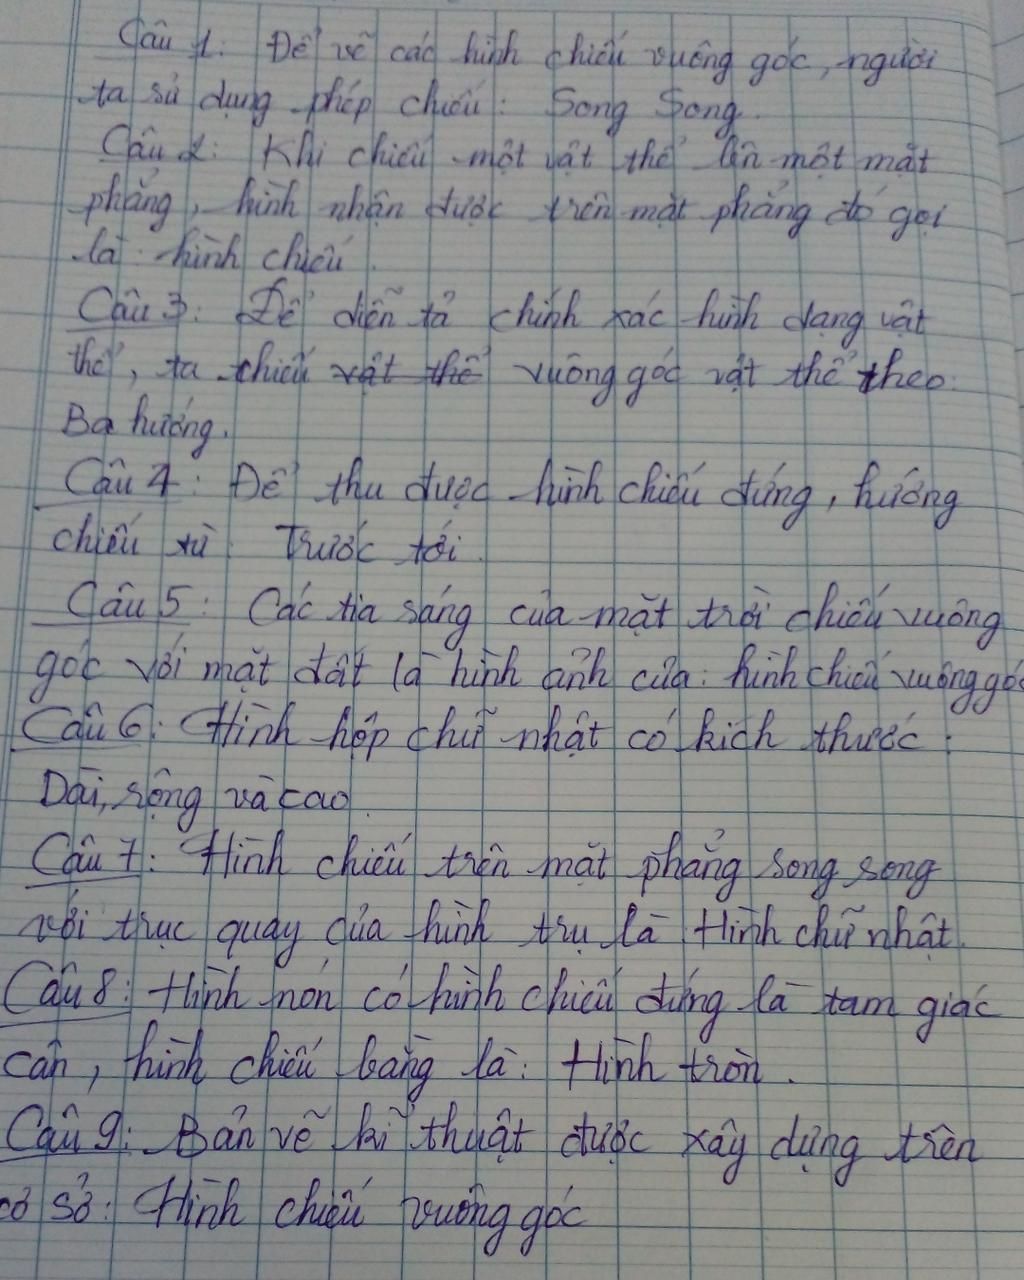 Câu 1: Để vẽ các hình chiếu vuông góc, người
ta sử dụng phép chiếu: Song Song.
Câu 2: Khi chiếu một vật thể lên một mặt
phẳng, hình nhận được trên mặt phẳng đó gọi
là: hình chiếu.
Câu 3: Để diễn tả chính xác hình dạng vật
thể, ta chiếu vật thể vuông góc vật thể theo:
Ba hướng.
Câu 4: Để thu được hình chiếu đứng, hướng
chiếu từ: Trước tới.
Câu 5: Các tia sáng của mặt trời chiếu vuông
góc với mặt đất là hình ảnh của: hình chiếu vuông góc
Câu 6: Hình hộp chữ nhật có kích thước:
Dài, rộng và cao.
Câu 7: Hình chiếu trên mặt phẳng song song
với trục quay của hình trụ là Hình chữ nhật.
Câu 8: Hình nón có hình chiếu đứng là tam giác
cân, hình chiếu bằng là: Hình tròn.
Câu 9: Bản vẽ kĩ thuật được xây dựng trên
cơ sở: Hình chiếu vuông góc